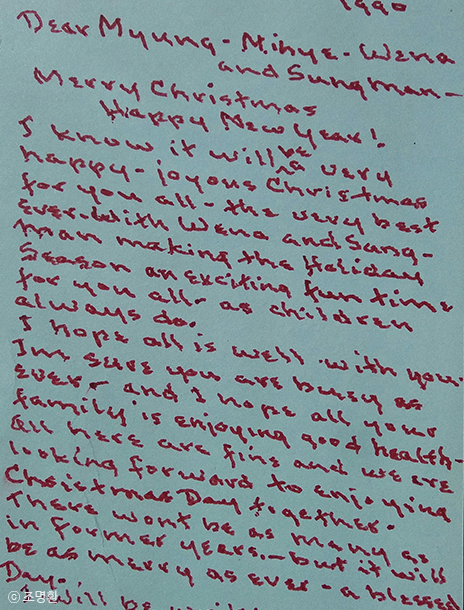 1990
Dear Myung - Mihye - Wena
and Sungman -
Merry Christmas
Happy New Year!
I know it will be
happy - joyous ^a very Christmas
for you all - the very best
ever - with Wena and Sung-
man making the Holiday
Season an exciting fun time
for you all - as children
always do.
I hope all is well with you.
Im sure you are busy as
ever - and I hope all your
family is enjoying good health -
All here are fine and we are
looking forward to enjoying
Christmas Day together.
There wont be as many as
in former years. - but it will
be as merry as ever - a blessed
Day.
will be
ⓒ 조명환